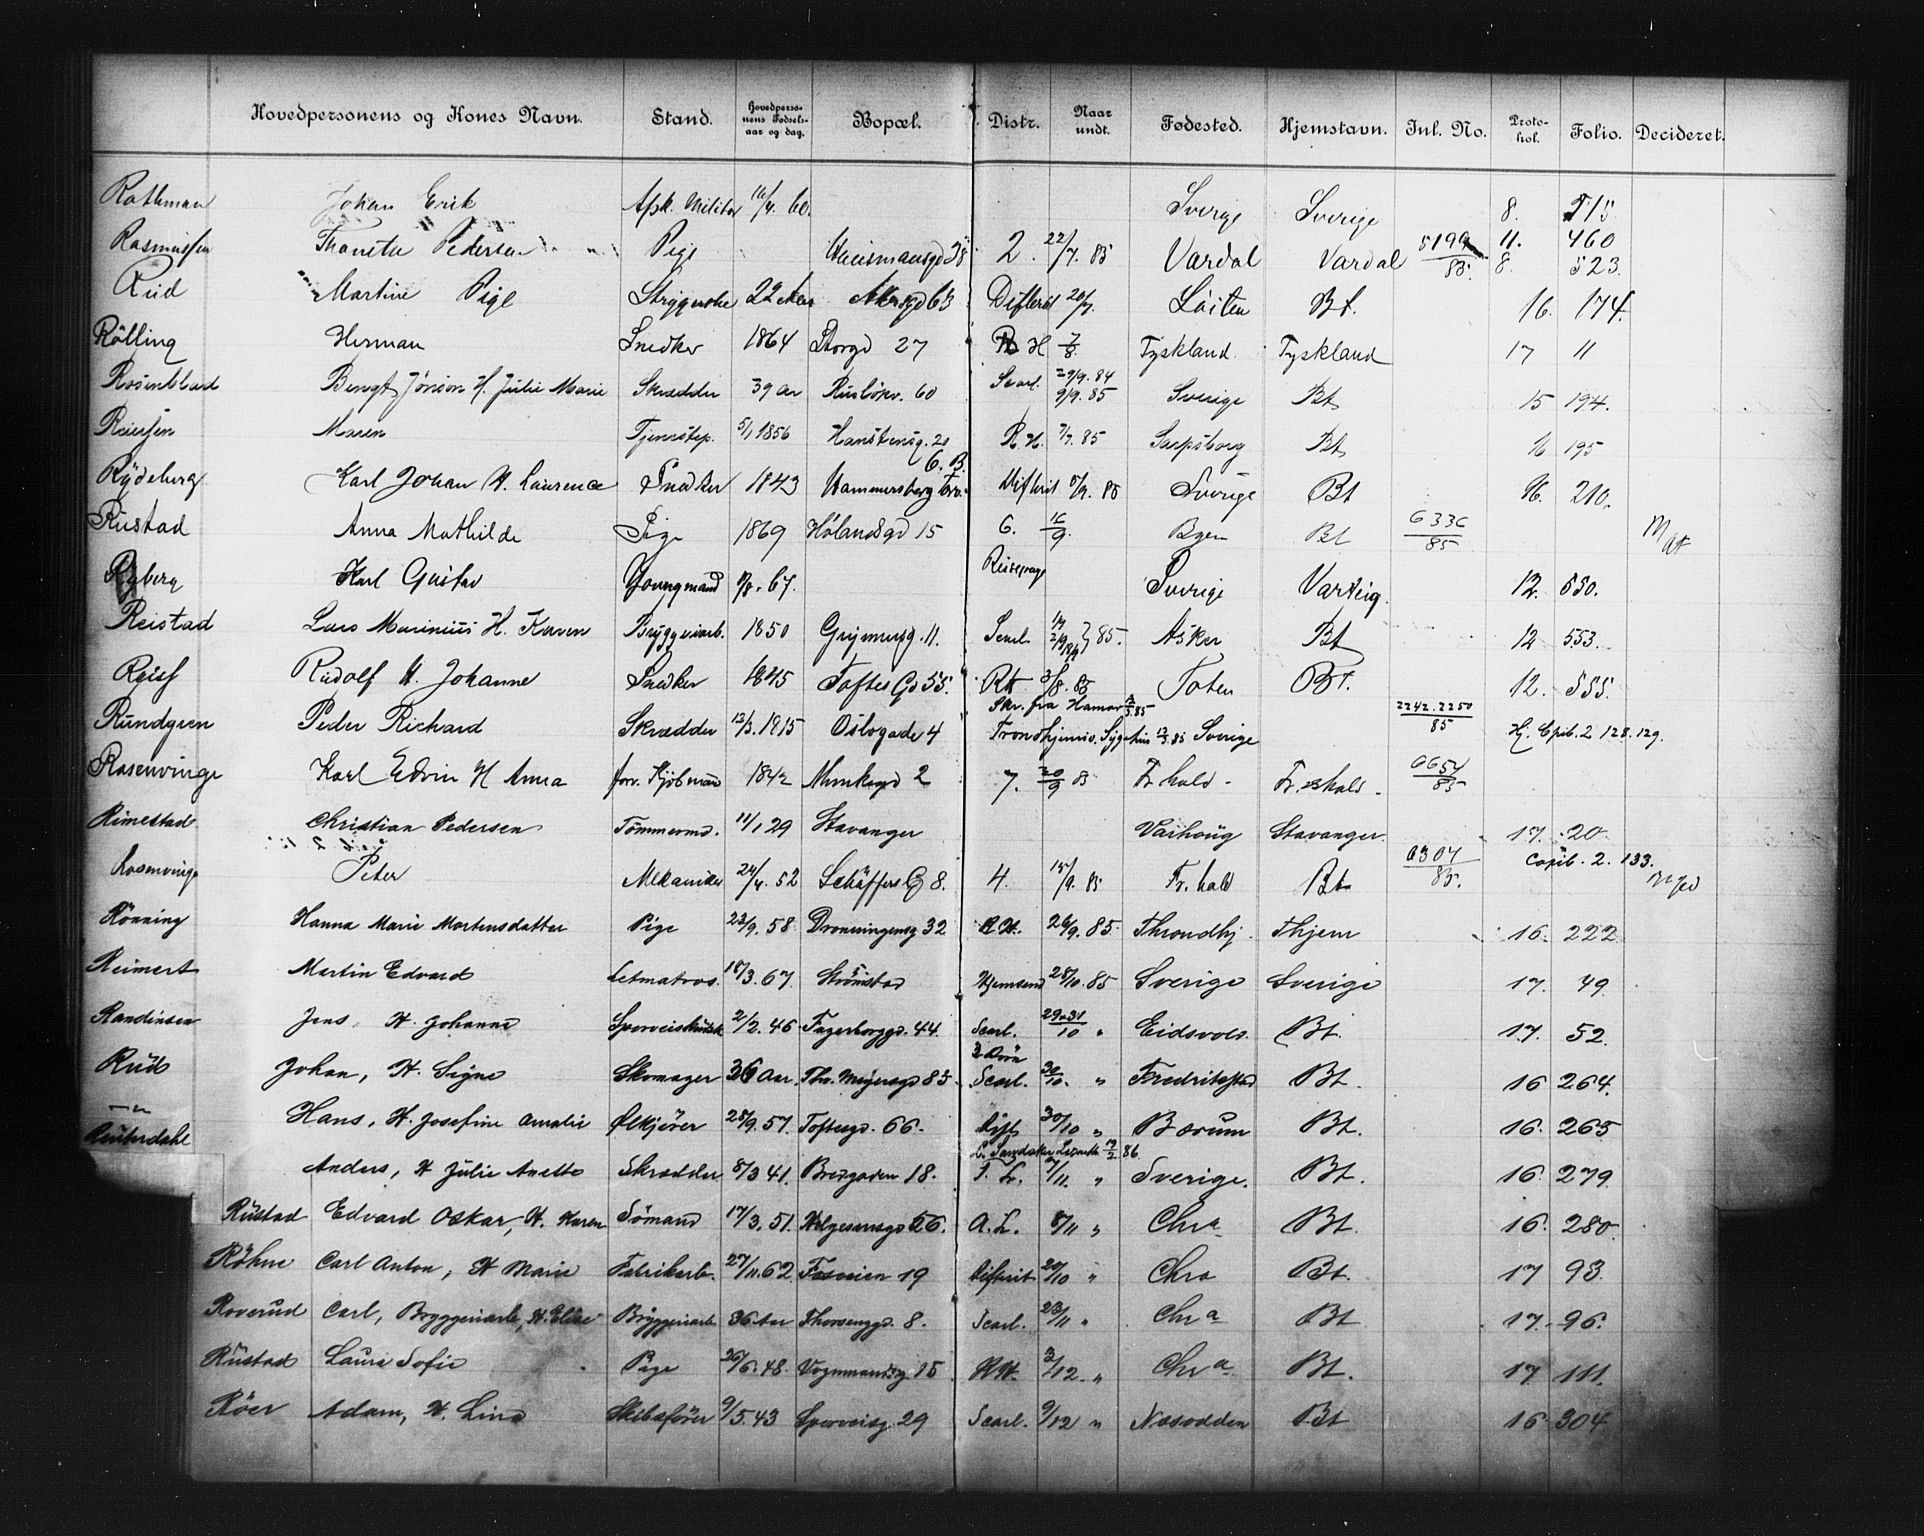 Hovedpersonens og Kones Navn. Stand. Hovedpersonens Fødselsaar og dag. Bopæl. Distr. Naar undt. Fødested. Hjemstavn. Inl. No. Protokol. Folio. Decideret.
Rothman Johan Erik Afsk. Militær 16/4. 60. Sverige Sverige 8. 515
Rasmussen Pedersen Pige 38 2. 22/7. 85 Vardal Vardal 5199/85. 11. 460 8. 523.
Rud Martine Pige Strygerske 22 Aar Akersgd 63 Difterit 20/7. Löiten Bt. 16. 174.
Rölling Herman Snedker 1864 Storgd 27 R H 7/8. Tyskland. Tyskland 17 11
Rosenblad Bengt Jönson H. Julie Marie Skrædder 39 Aar Rusløkv. 60 Scarl. 29/9. 84 9/9. 85 Sverige Bt 15 194.
Reiersen Maren Tjenestep. 5/1 1856 Hanstensg. 20 R. H. 7/7. 85 Sarpsborg Bt 16 195
Rydeberg Karl Johan H. Laurence Snedker 1843 Hammersborg Torv. 6. B. Difterit 5/9. 85 Sverige Bt 16. 210.
Rustad Anna Mathilde Pige 1869 Hölandsgd 15 6. 16/9. Byen Bt 6336/85
Ryberg Karl Gustav Youngmand 9/8. 67. Reisepenge Sverige Varteig. 12. 550.
Reistad Lars Marinius H. Karen Bryggeriarb. 1850 Grymersg. 11. Scarl. 85. Asker Bt 12 553.
Rudolf H. Johanne Snedker 1845 Toftes Gd 55. RH 3/8. 85 Toten Bt. 12. 555.
Rundgren Peder Richard Skrædder 12/3. 1815 Oslogade 4 Skr. fra Hamar 85 Trondhjems. Sygehus 85 Sverige 2242.2250/85 Copib. 2 128. 129.
Rosenvinge Karl Edvin H Anna forv. Kjøbmand 1842 Munkegd 2 7. 20/9 85 Fr. hald - Fr. hald - 6654/85
Rimestad Christian Pedersen Tømmermd. 11/1 29 Stavanger Varhoug Stavanger 17. 20.
Rosenvinge Peter Mekaniker 24/4. 52 Schäffers G 8. 4. 15/9. 85 Fr. hald Bt 6307/85. Copib. 2. 133.
Rönning Hanna Marie Mortensdatter Pige 23/9. 58. Dronningensg 32 R H. 26/9. 85. Throndhj. Thjem 16. 222
Reimert Martin Edvard Letmatros. 18/3. 67. Strömstad Hjemsend 28/10. 85 Sverige Sverige 17. 49.
Randinsen Jens, H. Johanne Sporveiskudsk 2/2. 46. Fagerborggd. 44. Scarl. 29.31/10 " Eidsvold. Bt. 17. 52.
Rud Johan, H. Signe Skomager 36 Aar. Thv. Meyersgd 85. 3 Børn Scarl. 30/10. " Fredrikstad Bt. 16 264.
— " — Hans, H. Josefine Amalie Ølkjører 28/9. 57. Toftesgd. 66. Dift. 30/10 " Bærum Bt. 16. 265
Reuterdahl Anders, H Julie Anette Skrædder 8/3 41. Bredgaden 18. 86 T. L. 7/11. " Sverige. Bt. 16. 279.
Rustad Edvard Oskar, H. Karen Sømand 17/3. 51. Helgesensgd 56. A. L. 8/11 " Chra Bt. 16. 280.
Röhne Carl Anton, H Marie Fabrikarb. 27/11. 62. Fosveien 19 Difterit 20/10 " Chra Bt. 17 93.
Roverud Carl, Bryggeriarb, H. Elise Bryggeriarb 36 Aar Thorsenggd. 8. Scarl. 23/11 " Chra Bt 17. 96.
Rustad Laura Sofie Pige 26/6. 48. Vognmandsg. 15 RH. 2/12. " Chra Bt. 17. 111.
Röer Adam, H. Lina Skibsfører 9/5. 43 Sporveisg. 29 Scarl. 9/12 " Næsodden Bt 16. 304.